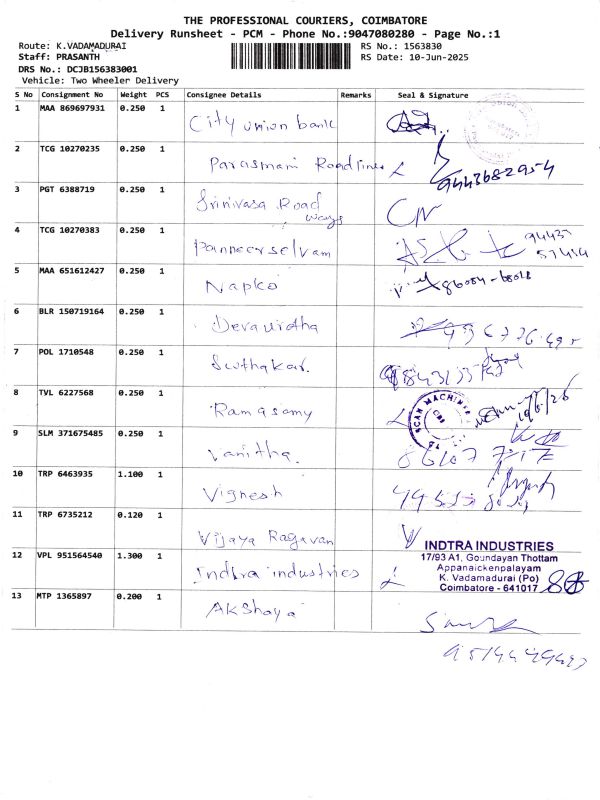 THE PROFESSIONAL COURIERS, COIMBATORE
Delivery Runsheet - PCM - Phone No.:9047080280 - Page No.:1
Route: K.VADAMADURAI RS No.: 1563830
Staff: PRASANTH RS Date: 10-Jun-2025
DRS No.: DCJB156383001
Vehicle: Two Wheeler Delivery
S No Consignment No Weight PCS Consignee Details Remarks Seal & Signature
1 MAA 869697931 0.250 1 City union bank
2 TCG 10270235 0.250 1 Parasmani Roadlines
9443682954
3 PGT 6388719 0.250 1 Srinivasa Road
ways
4 TCG 10270383 0.250 1 Panneerselvam 94437
57414
5 MAA 651612427 0.250 1 Napko
6 BLR 150719164 0.250 1
7 POL 1710548 0.250 1 Suthakar.
8 TVL 6227568 0.250 1 Ramasamy SCAN MACHINES
9 SLM 371675485 0.250 1 Vanitha.
10 TRP 6463935 1.100 1 Vignesh
11 TRP 6735212 0.120 1 Vijaya Ragavan
12 VPL 951564540 1.300 1 Indtra industries
INDTRA INDUSTRIES
17/93 A1, Goundayan Thottam
Appanaickenpalayam
K. Vadamadurai (Po)
Coimbatore - 641017
13 MTP 1365897 0.200 1 Akshaya